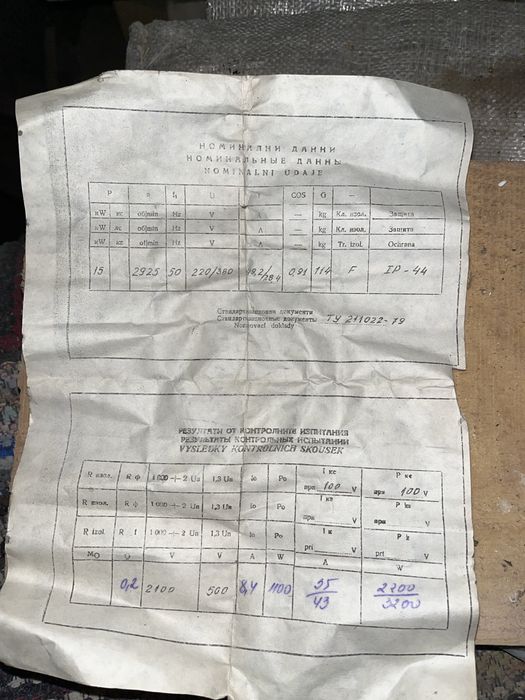 НОМИНАЛНИ ДАННИ
НОМИНАЛЬНЫЕ ДАННЫ
NOMINALNI UDAJE
P n f₁ U COS G —
кW кс об|min Hz V — kg Кл. изол. Защита
кW лс об|min Hz V A — kg Кл. изол. Защита
kW kc ot|min Hz V A — kg Tr. izol. Ochrana
15 2925 50 220/380 /28.4 0,91 114 F IP-44
Стандартизационни документи
Стандартизационные документы ТУ 211022-79
Normovaci doklady
РЕЗУЛТАТИ ОТ КОНТРОЛНИТЕ ИЗПИТАНИЯ
РЕЗУЛЬТАТЫ КОНТРОЛЬНЫХ ИСПЫТАНИИ
VYSLEDKY KONTROLNICH SKOUSEK
R изол. R ф 1 000 -|- 2 Un 1,3 Un Io Po I кс при 100 V P кс при 100 V
R изол. R ф 1 000 -|- 2 Un 1,3 Un Io Po I кз при V P кз при V
R izol. R f 1 000 -|- 2 Un 1,3 Un Io Po I k pri V P k pri V
MΩ Ω V V A W A W
0,2 2100 500 8,4 1100 35/43 2200/3200